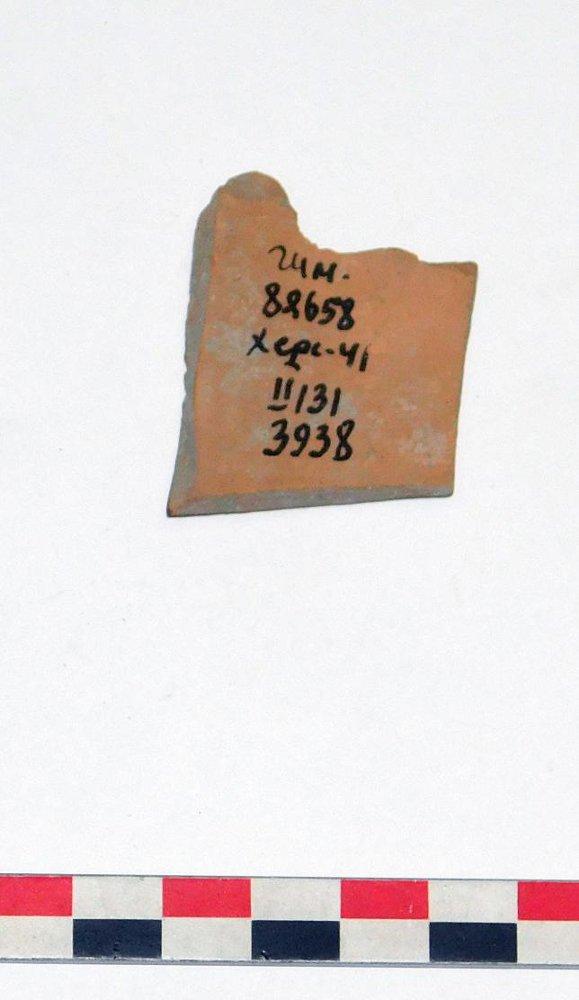 гим.
82658
Херс-41
II/131
3938